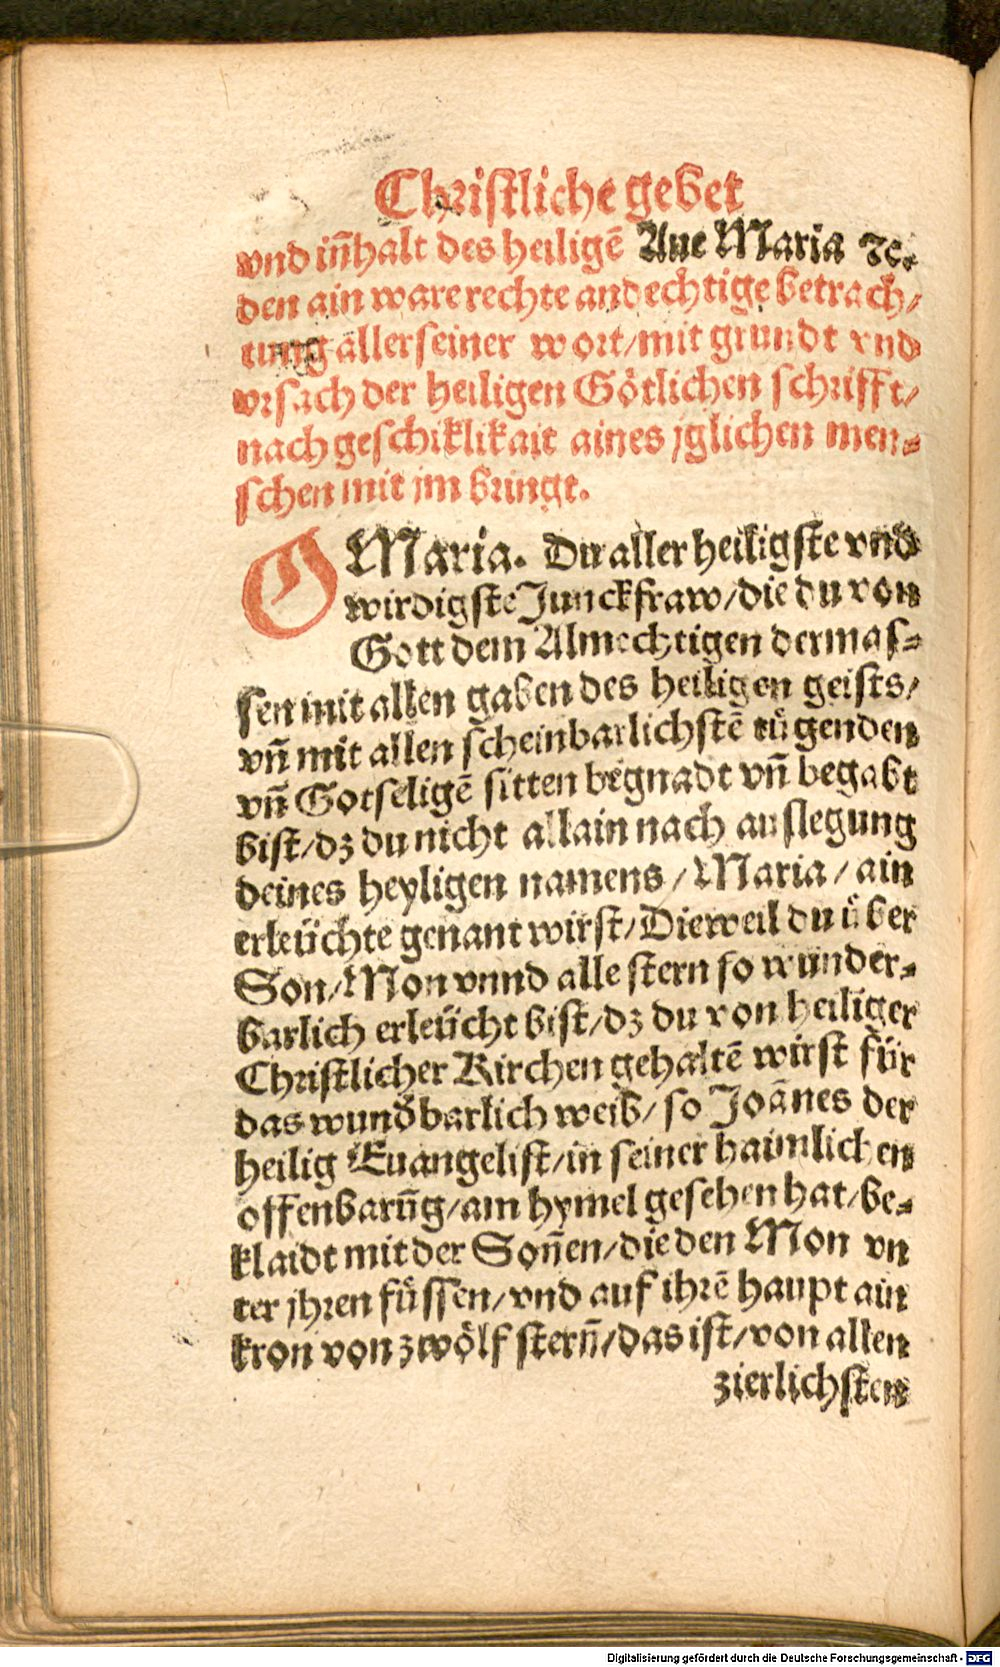 Christliche gebet
vnd iñhalt des heiligē Aue Maria ꝛc.
den ain ware rechte andechtige betrach/
tung aller seiner wort/mit grundt vnd
vrsach der heiligen Götlichen schrifft/
nach geschiklikait aines jglichen men⸗
schen mit jm bringt.
O Maria. Du aller heiligste vnd
wirdigste Junckfraw/die du von
Gott dem Almechtigen dermas⸗
sen mit allen gaben des heiligen geists/
vñ mit allen scheinbarlichstē tügenden
vñ Gotseligē sitten begnadt vñ begabt
bist/dz du nicht allain nach auslegung
deines heyligen namens/Maria/ain
erleüchte genant wirst/Dieweil du über
Son/Mon vnnd alle stern so wunder⸗
barlich erleücht bist/dz du von heiliger
Christlicher Kirchen gehaltē wirst für
das wunđbarlich weib/so Joānes der
heilig Euangelist/in seiner haimlichen
offenbarūg/am hymel gesehen hat/be⸗
klaidt mit der Soñen/die den Mon vn
ter jhren füssen/vnd auf ihrē haupt ain
kron von zwölf sterñ/das ist/von allen
zierlichsten
Digitalisierung gefördert durch die Deutsche Forschungsgemeinschaft - DFG